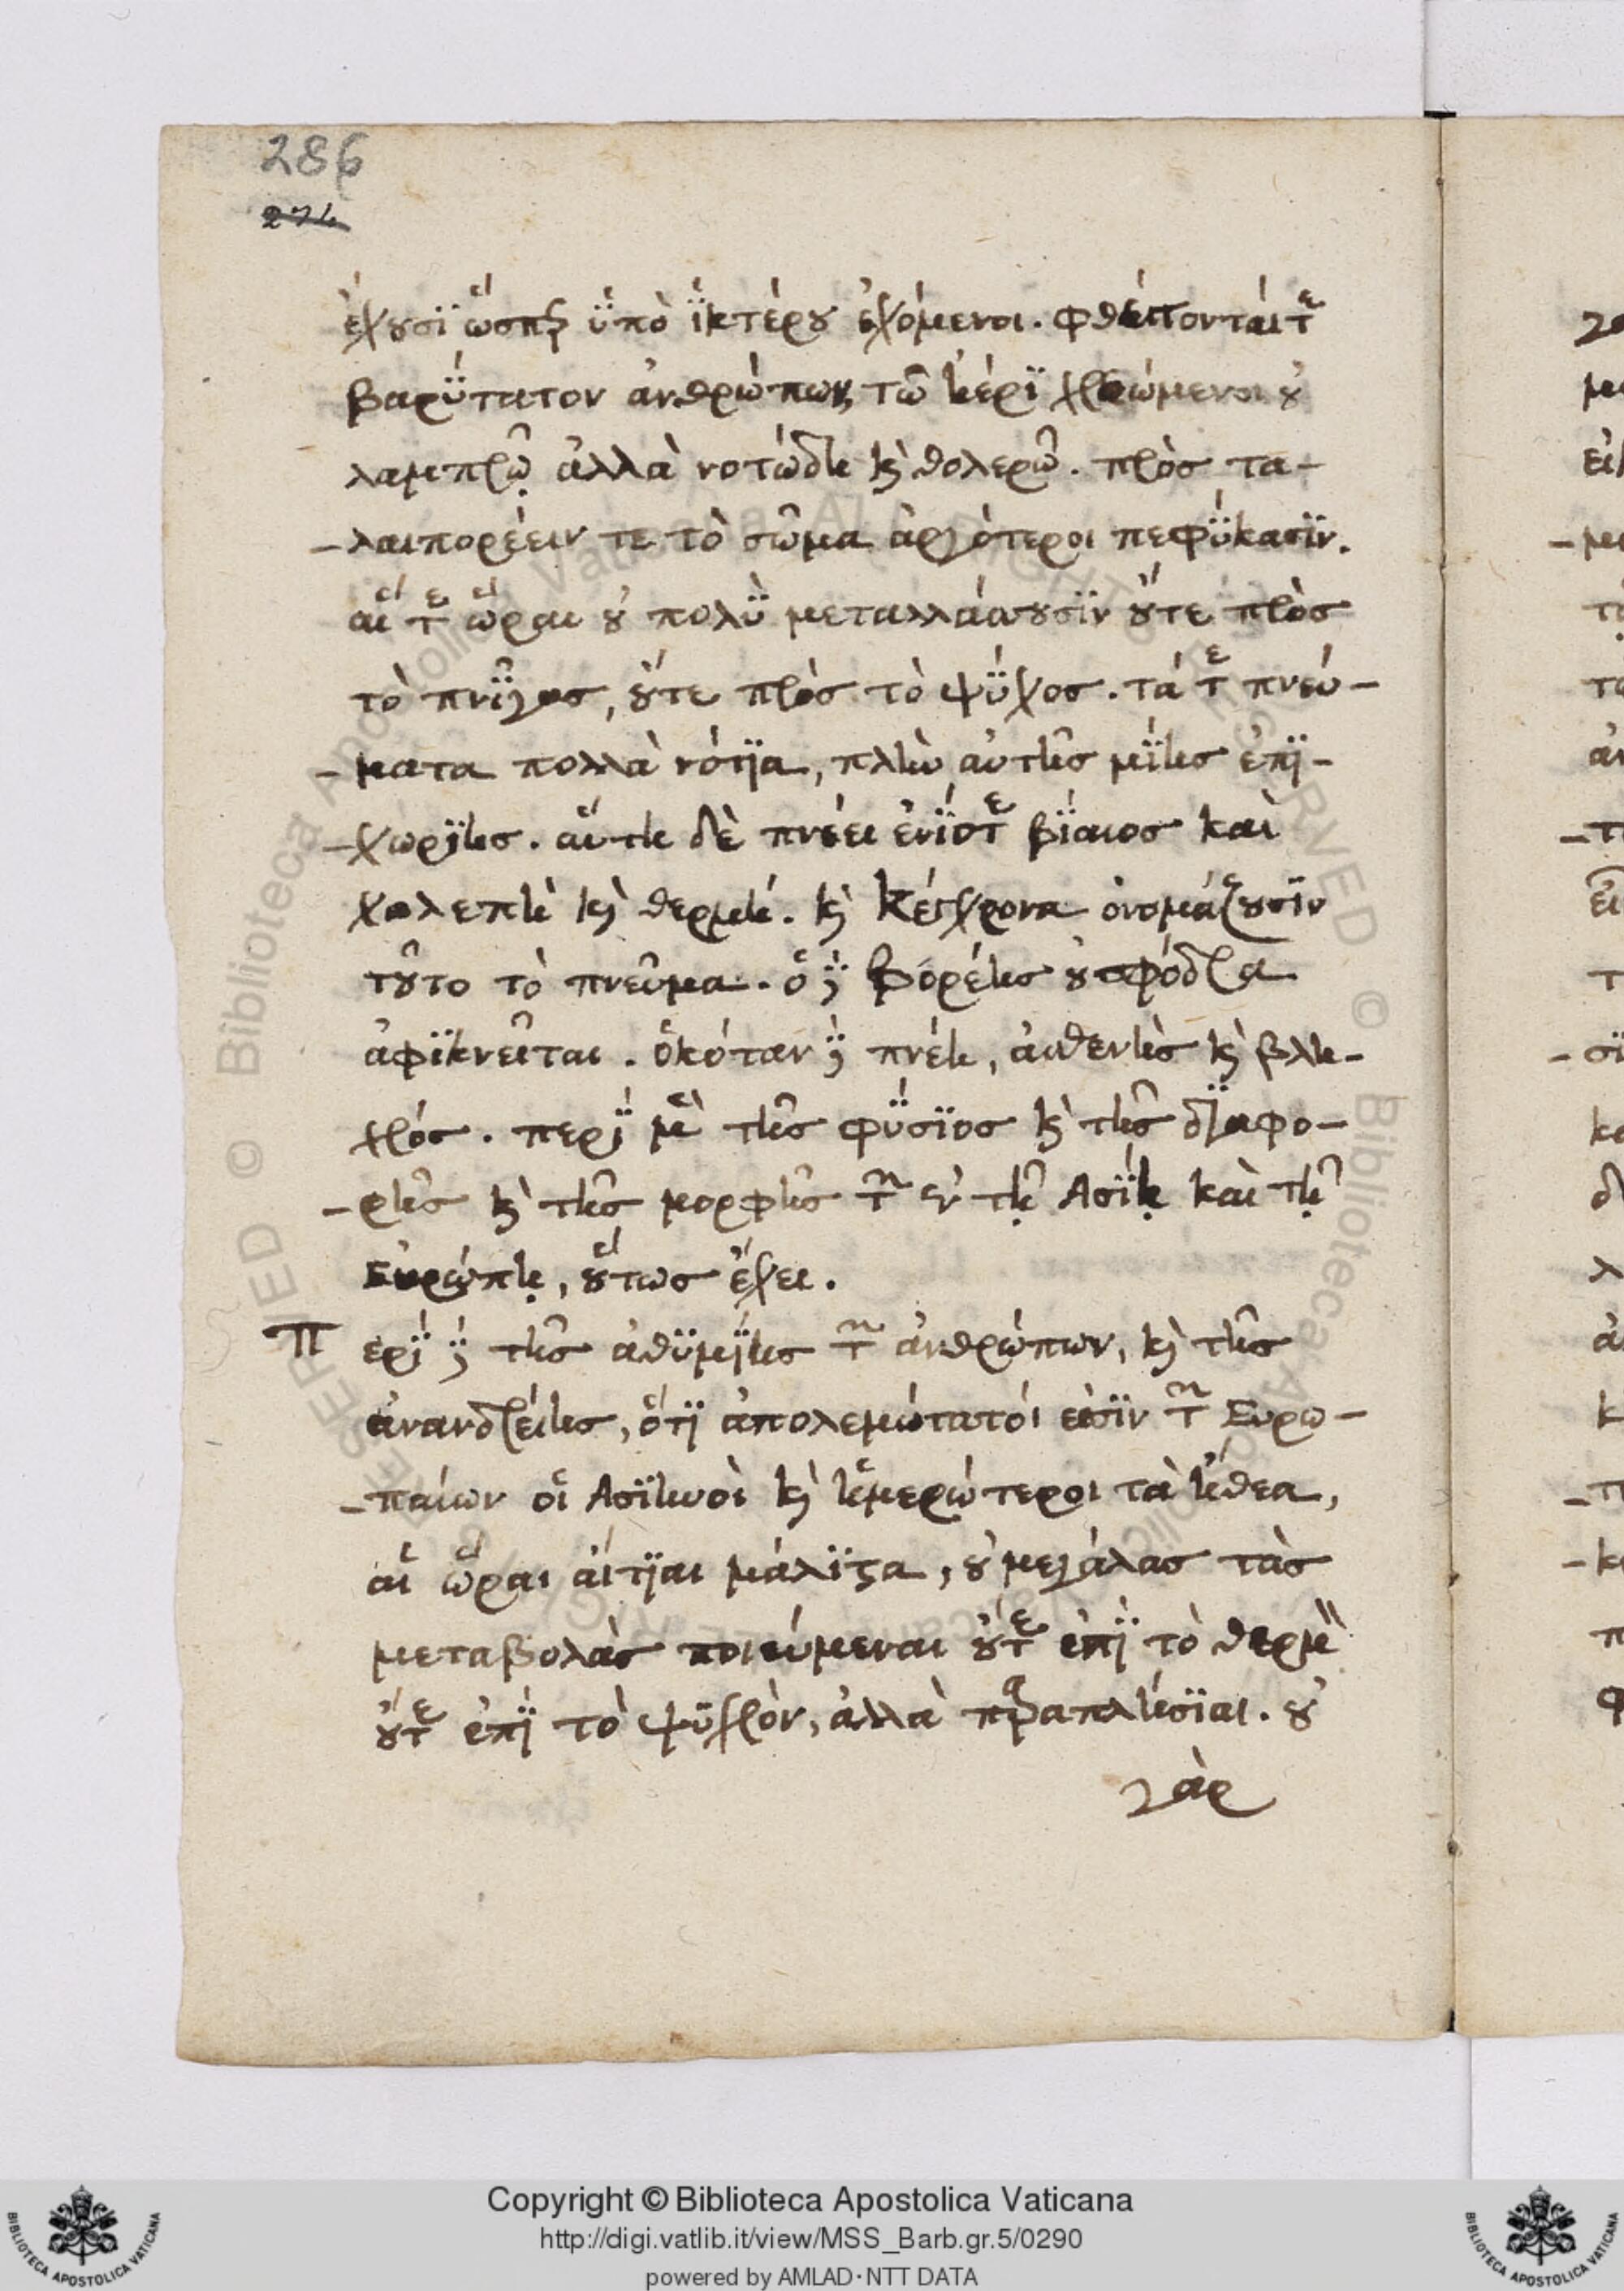 286
274
ἔχουσϊ ὥσπερ ὑπὸ ἰκτέρου ἐχόμενοι. φθέγγονταί τε
βαρύτατον ἀνθρώπων, τῶ ἠέρϊ χρεώμενοι οὐ
λαμπρῷ ἀλλὰ νοτώδη καὶ θολερῶ. πρὸς τα-
-λαιπορέειν τε τὸ σῶμα ἀργότεροι πεφύκασϊν.
αἵ τε ὧραι οὐ πολὺ μεταλλάσσουσϊν οὔτε πρὸς
τὸ πνῖγος, οὔτε πρὸς τὸ ψύχος. τά τε πνεύ-
-ματα πολλὰ νότϊα, πλὴν αὐτῆς μίης ἐπϊ-
-χωρίης. αὕτη δὲ πνέει ἐνίοτε βίαιος καὶ
χαλεπὴ καὶ θερμή. καὶ Κέγχρονα ὀνομάζουσϊν
τοῦτο τὸ πνεῦμα. ὁ δὲ βορέης οὐ σφόδρα
ἀφϊκνεῖται. ὁκόταν δὲ πνέη, ἀσθενὴς καὶ βλη-
χρός. περὶ μὲν τῆς φύσϊος καὶ τῆς δϊαφο-
-ρῆς καὶ τῆς μορφῆς τῶν ἐν τῇ Ἀσίῃ καὶ τῇ
Εὐρώπῃ, οὕτως ἔχει.
Περὶ δὲ τῆς ἀθυμίης τῶν ἀνθρώπων, καὶ τῆς
ἀνανδρείης, ὅτϊ ἀπολεμώτατόι εἰσϊν τῶν Εὐρω-
-παίων οἱ Ἀσϊηνοὶ καὶ ἡμερώτεροι τὰ ἤθεα,
αἱ ὧραι αἴτϊαι μάλϊστα, οὐ μεγάλας τὰς
μεταβολὰς ποιεύμεναι οὔτε ἐπὶ τὸ θερμὸν
οὔτε ἐπὶ τὸ ψυχρὸν, ἀλλὰ παραπλήσϊαι. οὐ
γὰρ
Copyright © Biblioteca Apostolica Vaticana
http://digi.vatlib.it/view/MSS_Barb.gr.5/0290
powered by AMLAD·NTT DATA